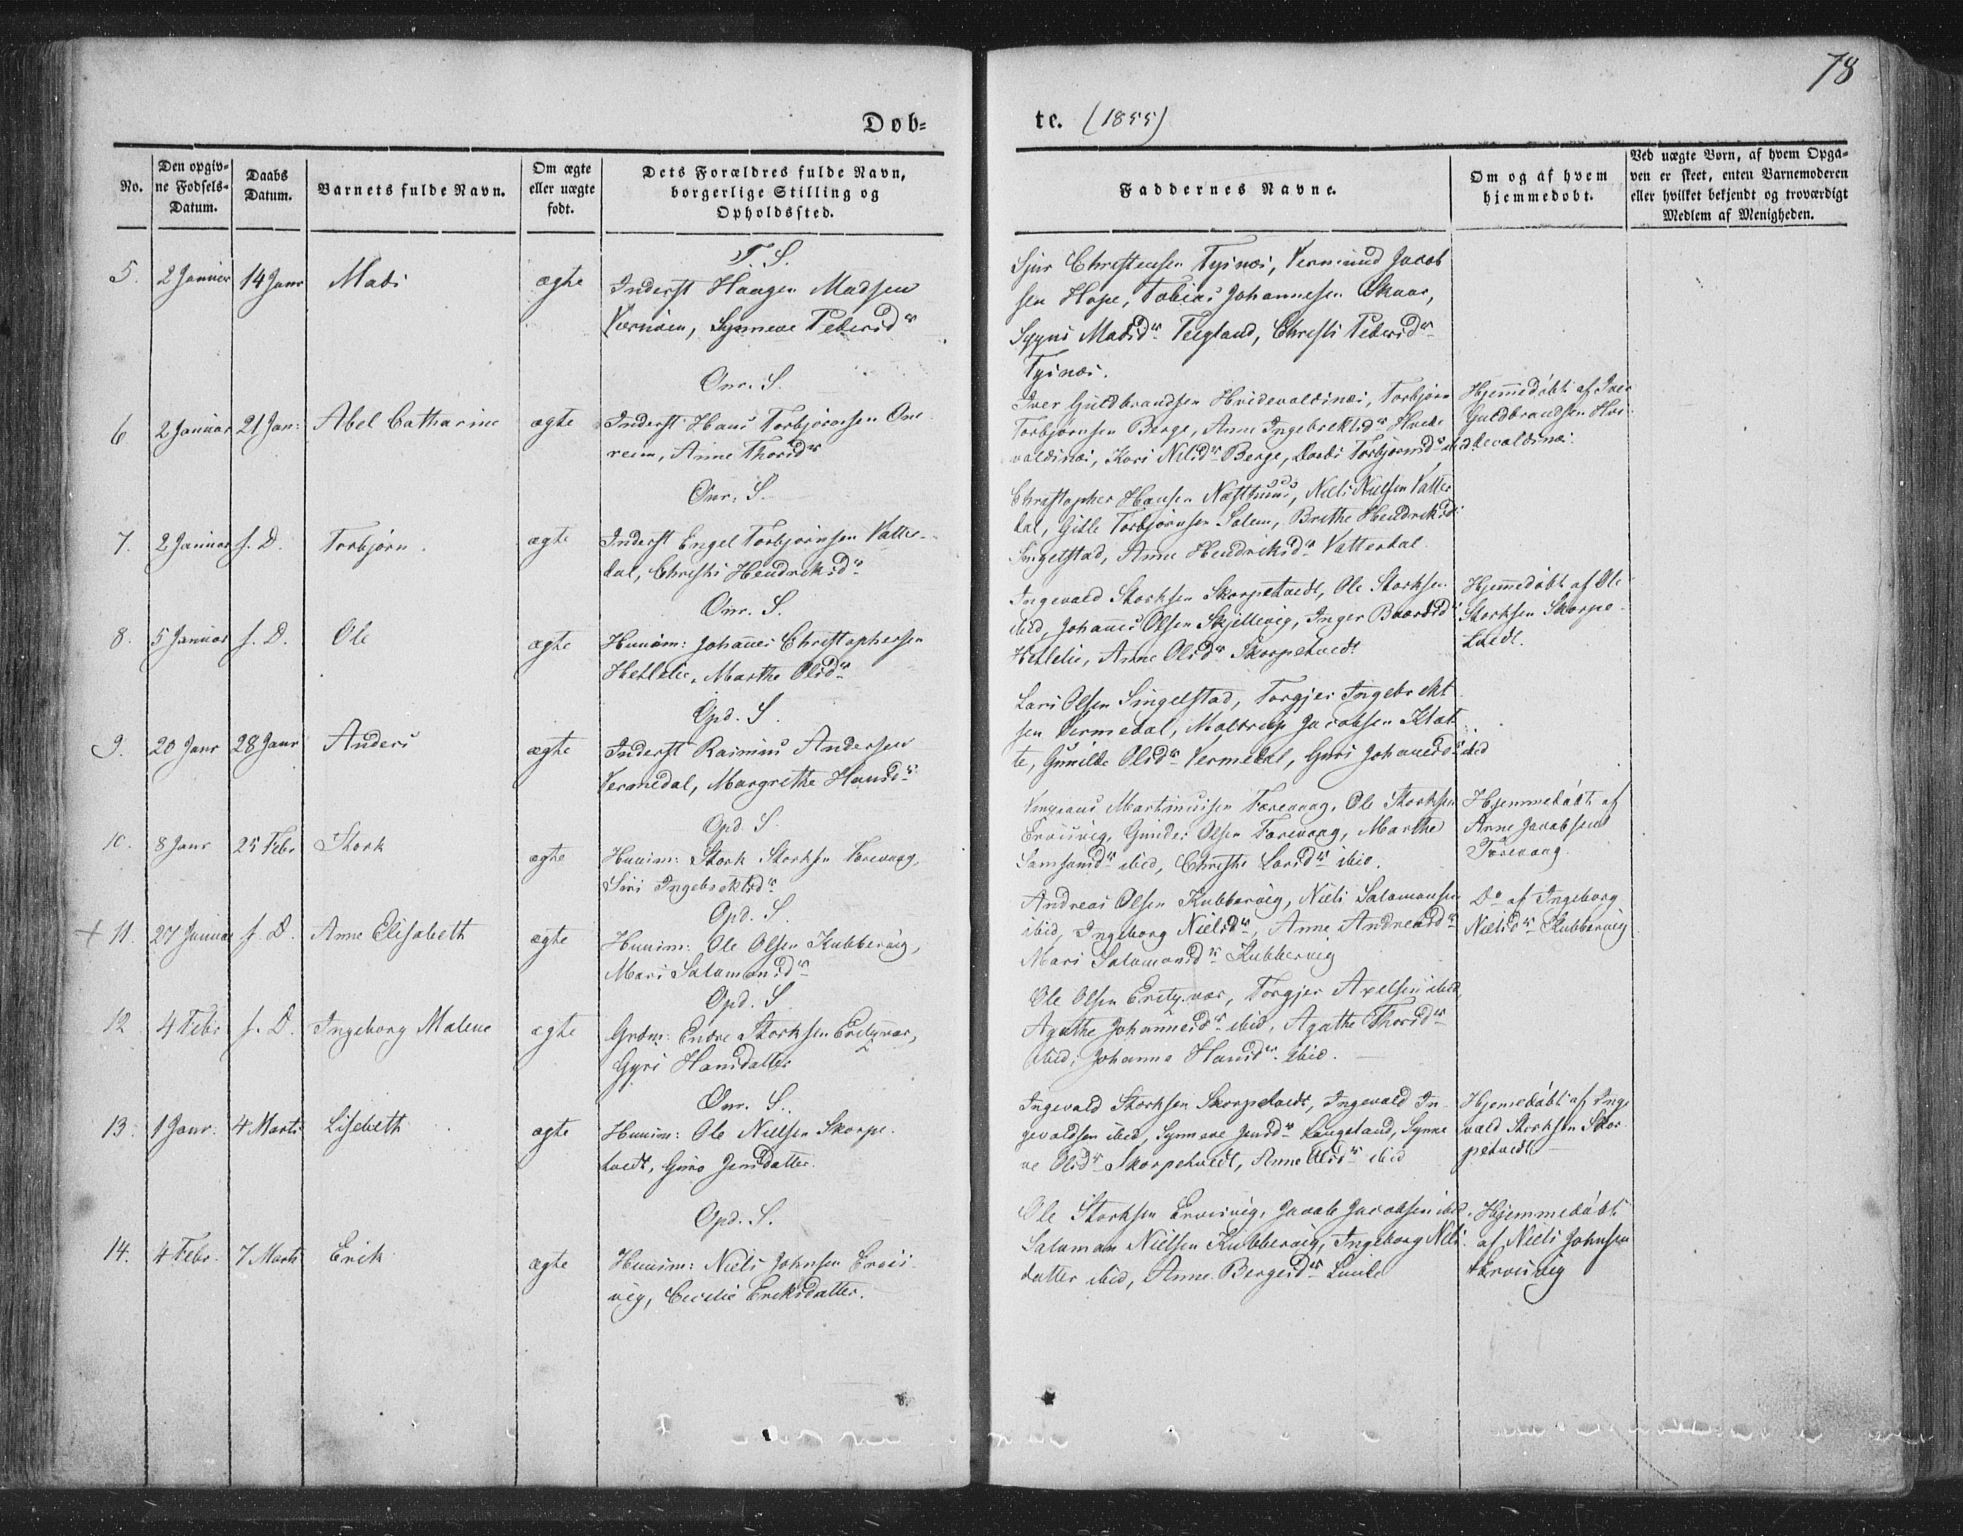 78
Døb-
te. (1855)
No.
Den opgiv-
ne Fødsels-
Datum.
Daabs
Datum.
Barnets fulde Navn.
Om ægte
eller uægte
født.
Dets Forældres fulde Navn,
borgerlige Stilling og
Opholdssted.
Faddernes Navne.
Om og af hvem
hjemmedøbt.
Ved uægte Børn, af hvem Opga-
ven er skeet, enten Barnemoderen
eller hvilket bekjendt og troværdigt
Medlem af Menigheden.
5. 2 Januar 14 Janr Mads ægte
T. S.
Inderst Haagen Madsen
Synneve Pedersdr
Sjur Christensen Tysnæs, Vermund Jacob
sen Hope, Tobias Johannesen Skaar,
Madsdr Teigland, Christi Pedersdr
Tysnæs.
6 2 Januar 21 Jan: Abel Catharine ægte
Onr. S.
Inderst Hans Torbjørnsen One
reim, Anne Thorsdr
Iver Guldbrandsen Hvidevaldsnæs, Torbjørn
Torbjørnsen Berge, Anne Ingebrektsdr Hvide
valdsnæs, Kari Nilsdr Berge, Torbjørnsdr ibid
Hjemmedøbt af Iver
Guldbrandsen Hvi-
devaldsnæs.
7. 2 Januar s. D. Torbjørn. ægte
Onr. S.
Inderst Engel Torbjørnsen Vatte
dal, Christi Hendriksdr
Christopher Hansen Næsthuus, Niels Nielsen Vatte
dal, Gitle Torbjørnsen Salem, Brithe Hendriksdr
Singelstad, Anne Hendriksdr Vattedal.
8. 5 Januar s. D. Ole ægte
Onr. S.
Huusm: Johannes Christophersen
Hetlelie, Marthe Olsdr
Ingevald Storksen Skorpetvedt, Ole Storksen
ibid, Johannes Olsen Skjellevig, Inger Baardsdr
Hetlelie, Anne Olsdr Skorpetvedt
Hjemmedøbt af Ole
Storksen Skorpe-
tvedt.
9. 20 Janr 28 Janr Anders ægte
Opd. S.
Inderst Rasmus Andersen
Vermedal, Margrethe Hansdr
Lars Olsen Singelstad, Torgjer Ingebrekt
sen Vermedal, Jacobsen Klat
te, Gunilde Olsdr Vermedal, Guri Johannesdr ibid
10. 8 Janr 25 Febr Stork ægte
Opd. S.
Huusm: Stork Storksen Færevaag,
Siri Ingebrektsdr
Martinussen Færevaag, Ole Storksen
Ervisvig, Gunder Olsen Færevaag, Marthe
Samsonsdr ibid, Christi Larsdr ibid.
Hjemmedøbt af
Anne Jacobsen
Færevaag.
+ 11. 27 Januar s. D. Anne Elisabeth ægte
Opd. S.
Huusm: Ole Olsen Kubbervig,
Mari Salamonsdr
Andreas Olsen Kubbervig, Niels Salamonsen
ibid, Ingeborg Nielsdr, Anne Andreasdr
Mari Salamonsdr Kubbervig
Do af Ingeborg
Nielsdr Kubbervig
12 4 Febr s. D. Ingeborg Malene ægte
Opd. S.
Grdm: Endre Storksen Ereksvær,
Gyri Hansdatter
Ole Olsen Ereksvær, Torgjer Axelsen ibid,
Agathe Johannesdr ibid, Agathe Thorsdr
ibid, Johanna Hansdr ibid.
13. 1 Janr. 4 Marts Lisebeth ægte
Onr. S.
Huusm: Ole Nielsen Skorpe-
tvedt, Guro Jensdatter.
Ingevald Storksen Skorpetvedt, Ingevald In-
gevaldsen ibid, Synneve Jensdr Laugeland, Synne
ve Olsdr Skorpetvedt, Anne Olsdr ibid
Hjemmedøbt af Inge
vald Storksen Skor-
petvedt
14. 4 Febr. 7 Marts Erik ægte
Opd. S.
Huusm: Niels Johnsen Ervis-
vig, Cecilie Eriksdatter.
Ole Storksen Ervisvig, Jacob Jacobsen ibid,
Salamon Nielsen Kubbervig, Ingeborg Nils-
datter ibid, Anne Bergesdr Lunde
Hjemmedøbt
af Niels Johnsen
Ervisvig